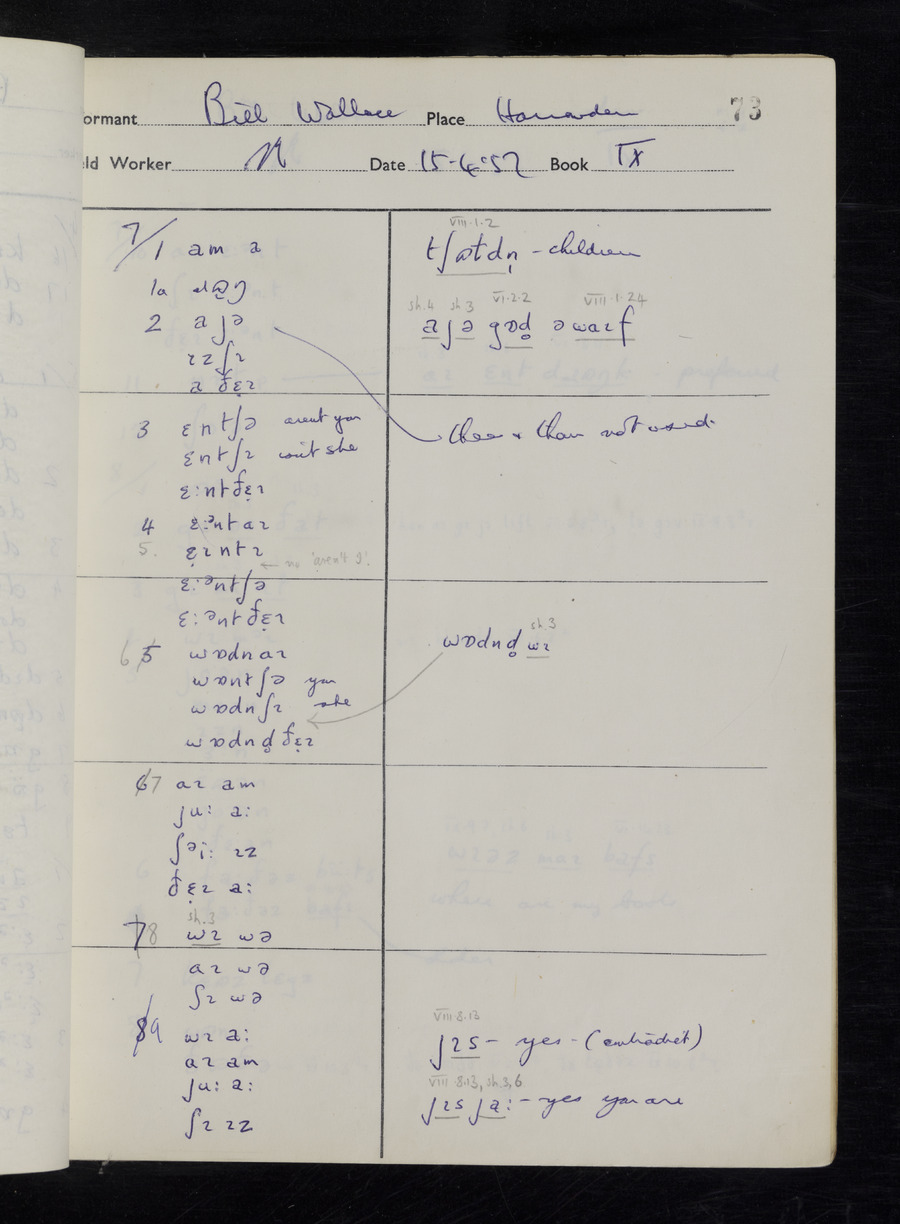 ormant Bill Wallace Place Harwarden 73
ld Worker N Date 15-4-57 Book IX
7/1 am a
1a
2 a jə
ɪz ʃɪ
a ðɛ̣ɪ
3 ɛntʃə arent you
ɛntʃɪ isn't she
ɛ:ntðɛ̣ɪ
4 ɛ:ᵊntaɪ
5. ɛ̣ɪntɪ
← no 'aren't I'.
ɛ:ᵊntʃə
ɛ:ᵊntðɛ̣ɪ
6 5 wɒdnaɪ
wɒntʃə you
wɒdnʃɪ she
wɒdnd̥ðɛ̣ɪ
6 7 aɪ am
ju: a:
ʃəi: ɪz
ðɛ̣ɪ a:
sh.3
7 8 wɪ wə
aɪ wə
ʃɪ wə
8 9 wɪ a:
aɪ am
ju: a:
ʃɪ ɪz
VIII.1.2
- children
sh.4 sh3 VI.2.2 VIII.1.24
a jə gɒd̥ ə waɪf
thee & thou not used.
sh.3
wɒdnd̥ wɪ
VIII 8.13
jɪs - yes - (contradict)
VIII 8.13, sh.3,6
jɪs ja: - yes you are